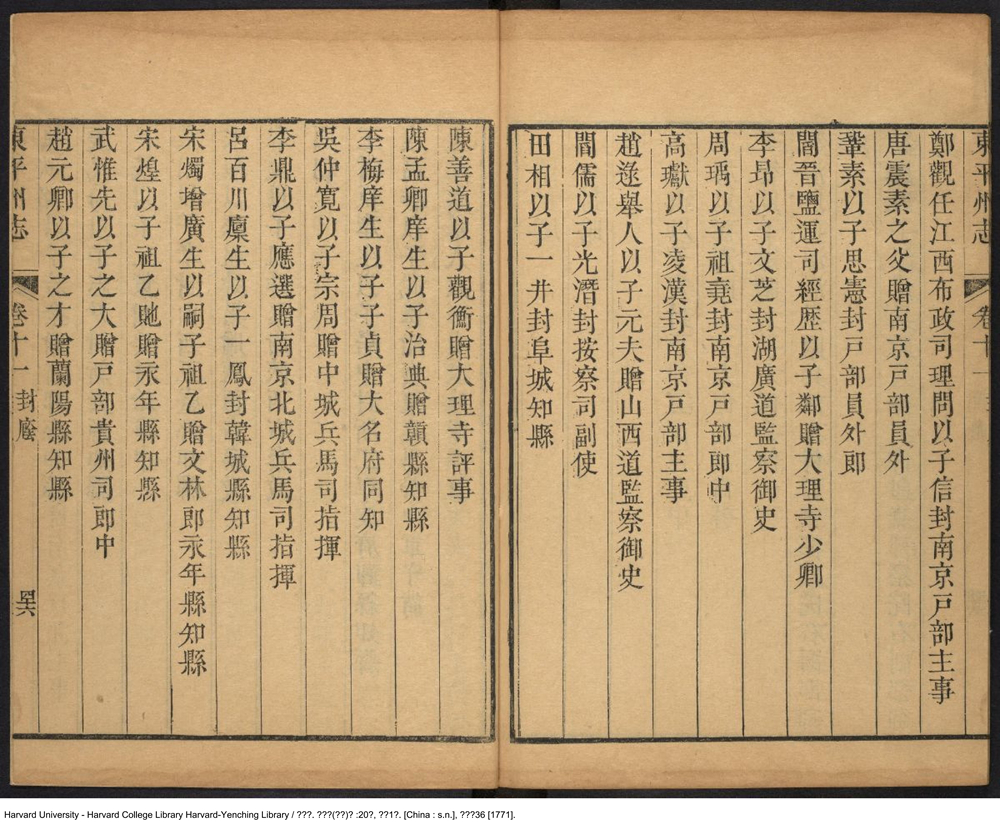 東平州志 卷十一
鄭觀任江西布政司理問以子信封南京戸部主事
唐震素之父贈南京戸部員外
鞏素以子思憲封戸部員外郎
閻晉鹽運司經歴以子鄰贈大理寺少卿
李昻以子文芝封湖廣道監察御史
周瑀以子祖堯封南京戸部郎中
高瓛以子凌漢封南京戸部主事
趙逵舉人以子元夫贈山西道監察御史
閻儒以子光潛封按察司副使
田相以子一井封阜城知縣
陳善道以子觀衡贈大理寺評事
陳孟卿庠生以子治典贈贛縣知縣
李梅庠生以子子貞贈大名府同知
吳仲寬以子宗周贈中城兵馬司指揮
李鼎以子應選贈南京北城兵馬司指揮
呂百川廩生以子一鳳封韓城縣知縣
宋燭增廣生以嗣子祖乙贈文林郎永年縣知縣
宋煌以子祖乙貤贈永年縣知縣
武惟先以子之大贈戸部貴州司郎中
趙元卿以子之才贈蘭陽縣知縣
東平州志 卷十一 封廕 罢
Harvard University - Harvard College Library Harvard-Yenching Library / ???. ???(??)? :20?, ??1?. [China : s.n.], ???36 [1771].